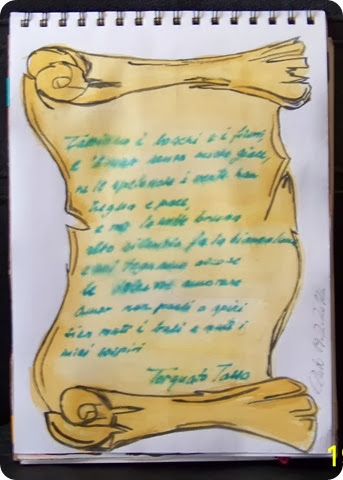 Tacciono i boschi e i fiumi,
e 'l mar senza onde giace,
ne le spelonche i venti han
tregua e pace,
e ne la notte bruna
alto silenzio fa la bianca luna
e noi tegnamo ascose
le dolcezze amorose
amor non parli o spiri
sien muti i baci e muti i
miei sospiri
Torquato Tasso